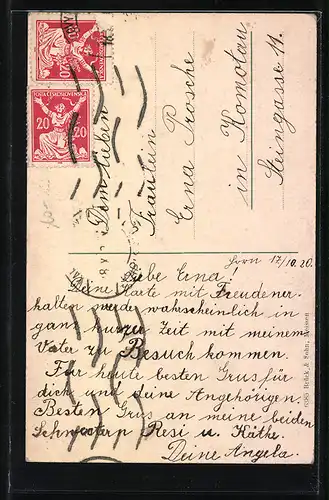 POŠTA ČESKOSLOVENSKÁ
20 20
Dem lieben
Fräulein
Erna Prosche
in Komotau
Steingasse 11.
Horn 17/10. 20.
Liebe Erna!
Deine Karte mit Freuden er-
halten, werde wahrscheinlich in
ganz kurzer Zeit mit meinem
Vater zu Besuch kommen.
Für heute besten Grus für
dich und deine Angehörigen.
Besten Grus an meine beiden
Schwestern Resi u. Käthe.
Deine Angela.
& Sohn, Meissen